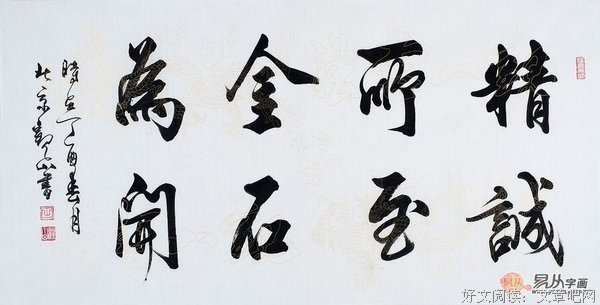 精誠
所至
金石
為開
時在丁酉春月
北京觀山書
易从
易从字画
www.yicongart.com
好文阅读：文章吧网